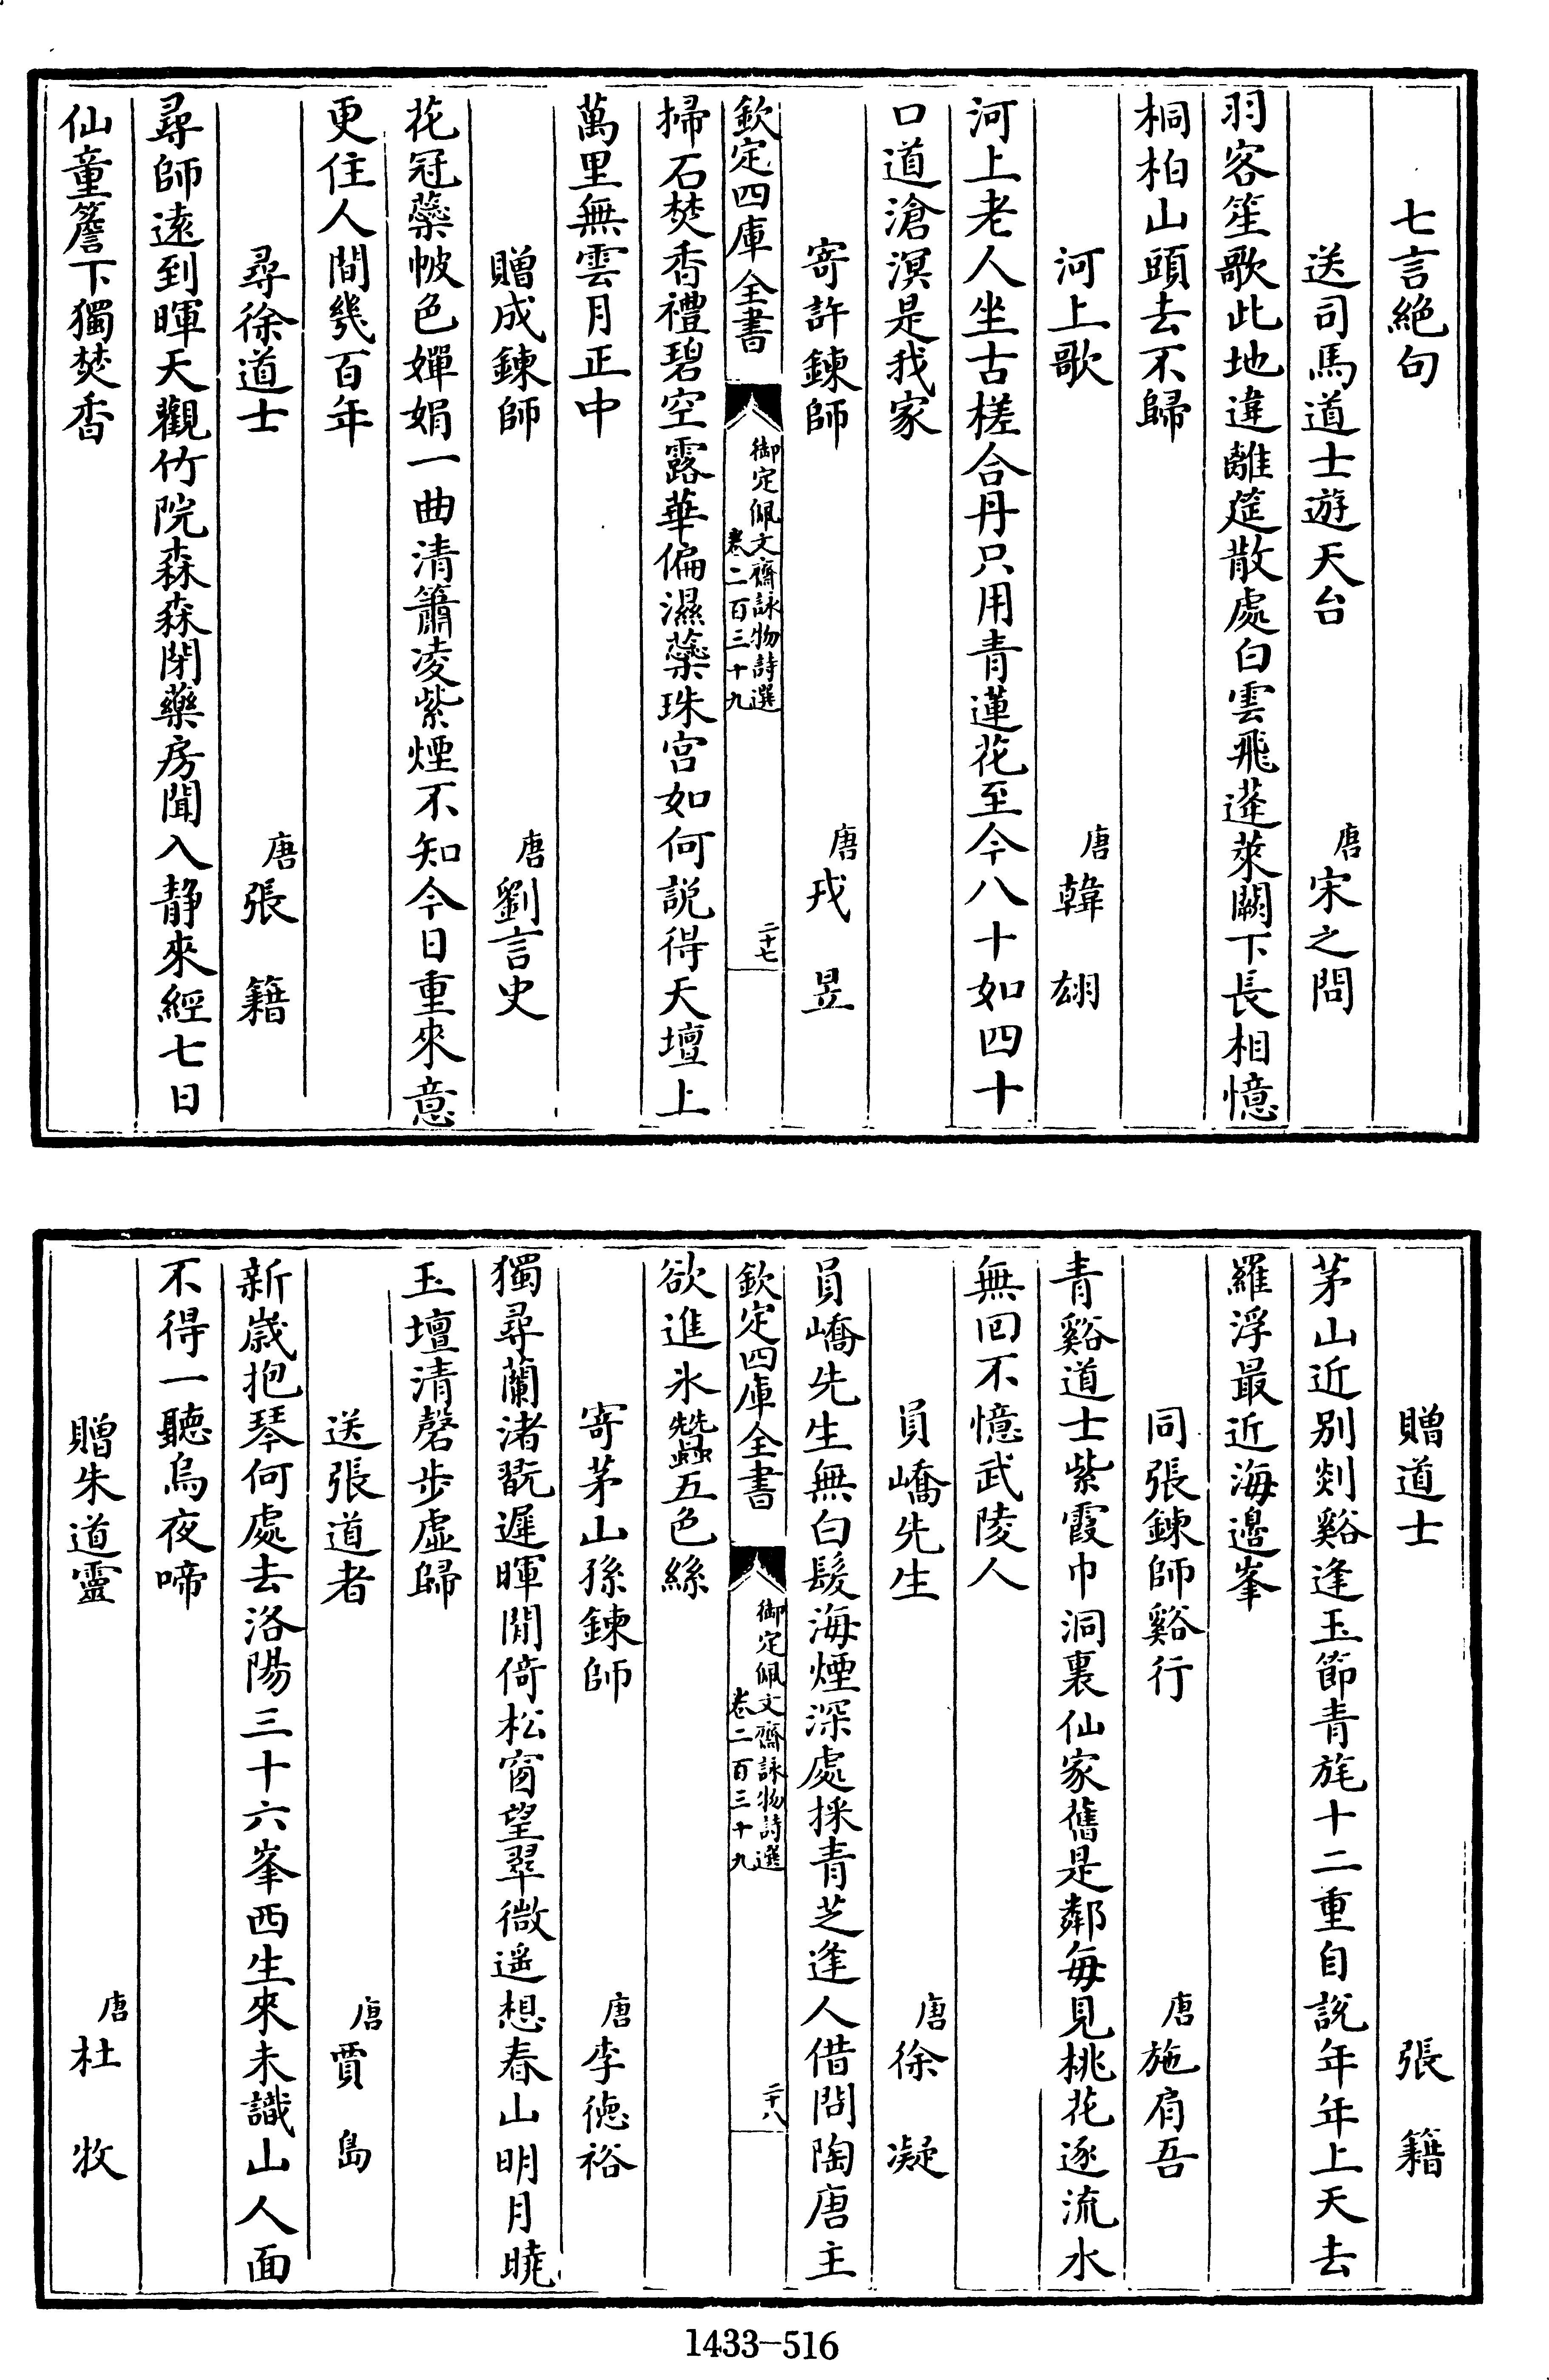 七言絕句
送司馬道士遊天台　唐宋之問
羽客笙歌此地違離筵散處白雲飛蓬萊闕下長相憶
桐柏山頭去不歸
河上歌　唐韓翃
河上老人坐古槎合丹只用青蓮花至今八十如四十
口道滄溟是我家
寄許鍊師　唐戎昱
欽定四庫全書　御定佩文齋詠物詩選卷二百三十九　二十七
掃石焚香禮碧空露華偏濕蘂珠宮如何説得天壇上
萬里無雲月正中
贈成鍊師　唐劉言史
花冠蘂帔色嬋娟一曲清簫凌紫煙不知今日重來意
更住人間幾百年
尋徐道士　唐張籍
尋師遠到暉天觀竹院森森閉藥房聞入静來經七日
仙童簷下獨焚香
贈道士　張籍
茅山近别剡谿逢玉節青旄十二重自說年年上天去
羅浮最近海邊峯
同張鍊師谿行　唐施肩吾
青谿道士紫霞巾洞裏仙家舊是鄰每見桃花逐流水
無回不憶武陵人
員嶠先生　唐徐凝
員嶠先生無白髮海煙深處採青芝逢人借問陶唐主
欽定四庫全書　御定佩文齋詠物詩選卷二百三十九　二十八
欲進氷蠶五色絲
寄茅山孫鍊師　唐李德裕
獨尋蘭渚翫遲暉閒倚松窗望翠微遥想春山明月曉
玉壇清磬步虛歸
送張道者　唐賈島
新歲抱琴何處去洛陽三十六峯西生來未識山人面
不得一聽烏夜啼
贈朱道靈　唐杜牧
1433-516